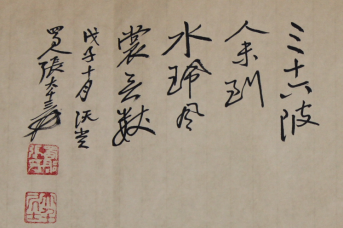 三十六陂
人未到
水珮风
裳无數
戊子十月
蜀人張大千爰